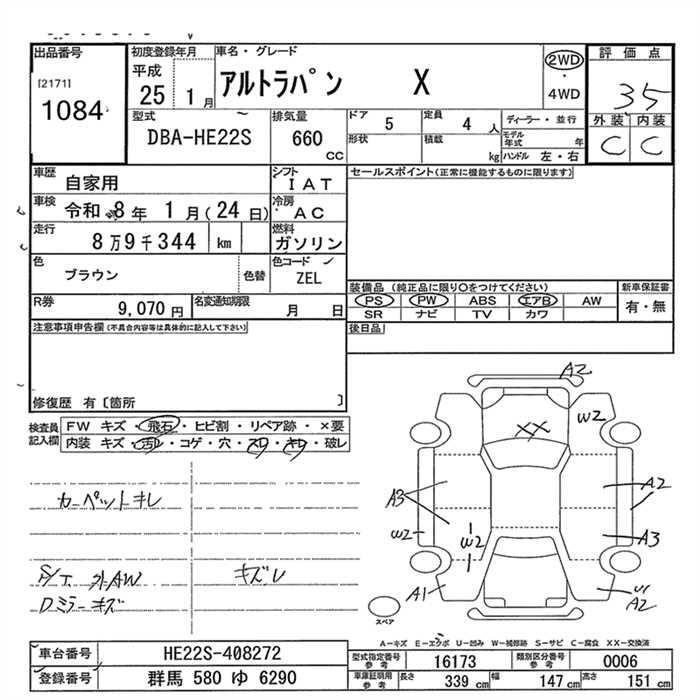 出品番号
[2171]
1084
初度登録年月
平成
25 1月
車名・グレード
アルトラパン X
2WD
・
4WD
評価点
35
外装 内装
C C
型式
DBA-HE22S
排気量
660
CC
ドア 5
定員 4 人
形状
積載 kg
ディーラー・並行
モデル年式 年
ハンドル 左・右
車歴
自家用
シフト
IAT
車検
令和 8年 1月(24日)
冷房
AC
走行
8万9千344 km
燃料
ガソリン
色
ブラウン
色替
色コード
ZEL
R券
9,070円
名変通知期限
月 日
セールスポイント(正常に機能するものに限ります)
装備品(純正品に限り○をつけてください)
PS PW ABS エアB AW
SR ナビ TV カワ
新車保証書
有・無
後日品
注意事項申告欄(不具合内容等は具体的に記入して下さい)
修復歴 有〔箇所 〕
検査員記入欄
FW キズ・飛石・ヒビ割・リペア跡・×要
内装 キズ・汚レ・コゲ・穴・スレ・キレ・破レ
カーペットキレ
S/T 外AW キズレ
Dミラーキズ
A2
W2
XX
A3
A2
W2
W2
A3
A1
U1
A2
スペア
A-キズ E-エクボ U-凹み W-補修跡 S-サビ C-腐食 XX-交換済
車台番号
HE22S-408272
登録番号
群馬 580 ゆ 6290
型式指定番号
参考
16173
類別区分番号
参考
0006
車庫証明用
参考
長さ 339 cm
幅 147 cm
高さ 151 cm